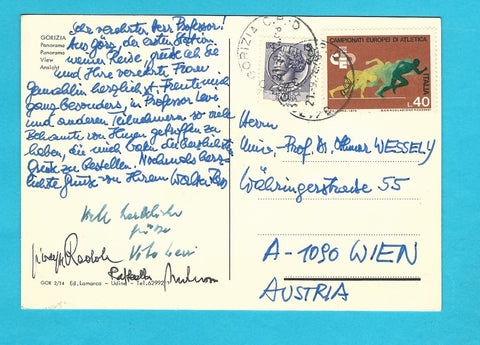 GORIZIA
Panorama
Panorama
View
Ansicht
Sehr verehrter Herr Professor!
Aus Görz, der ersten Station
meiner Reise, grüße ich Sie
und Ihre verehrte Frau
Gemahlin herzlichst. Freut mich
ganz besonders, in Professor Levi
und anderen Teilnehmern so viele
Bekannte von Ihnen getroffen zu
haben, die mich baten die herzlichsten
Grüße zu bestellen. Nochmals herz-
lichste Grüße von Ihrem Walter
herzliche
Grüße
Vito Levi
GOR 2/14 Ed. Lamarca - Udine Tel. 62992
GORIZIA C.P.O
CAMPIONATI EUROPEI DI ATLETICA
ITALIA
40
Herrn
Univ. Prof. Dr. Othmar WESSELY
Währingerstraße 55
A-1090 WIEN
AUSTRIA